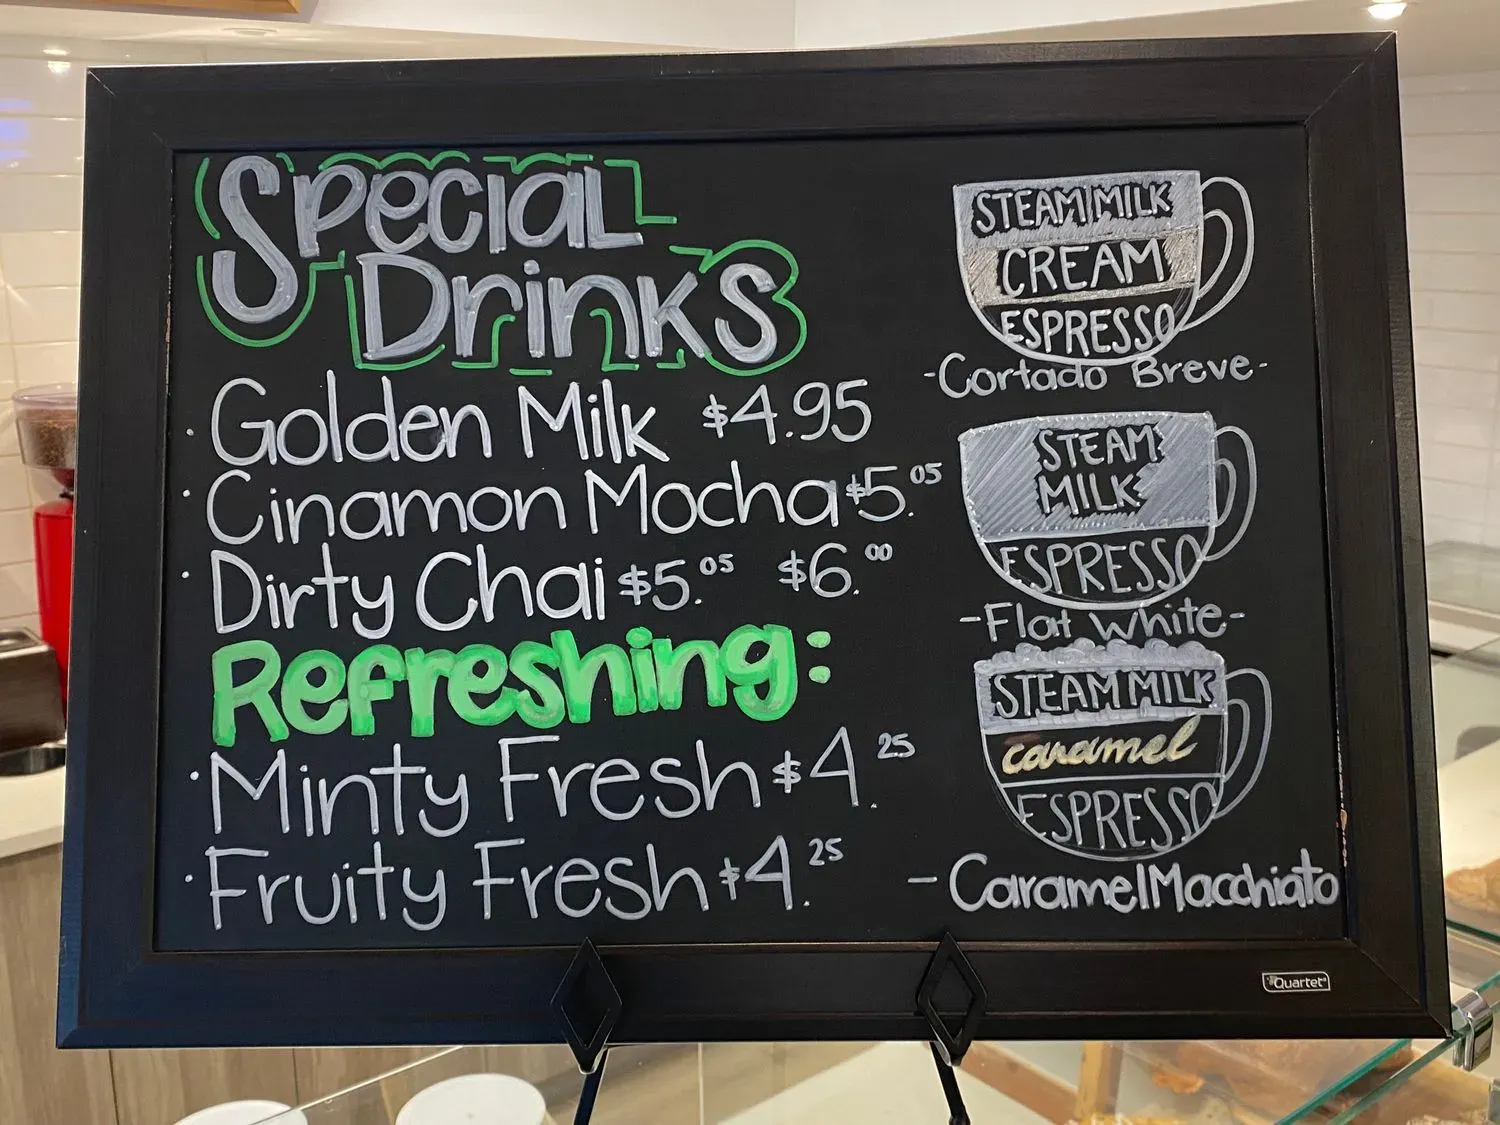 Special
Drinks
· Golden Milk $4.95
· Cinamon Mocha $5.05
· Dirty Chai $5.05 $6.00
Refreshing:
· Minty Fresh $4.25
· Fruity Fresh $4.25
STEAM MILK
CREAM
ESPRESSO
-Cortado Breve-
STEAM
MILK
ESPRESSO
-Flat White-
STEAM MILK
caramel
ESPRESSO
- Caramel Macchiato
Quartet